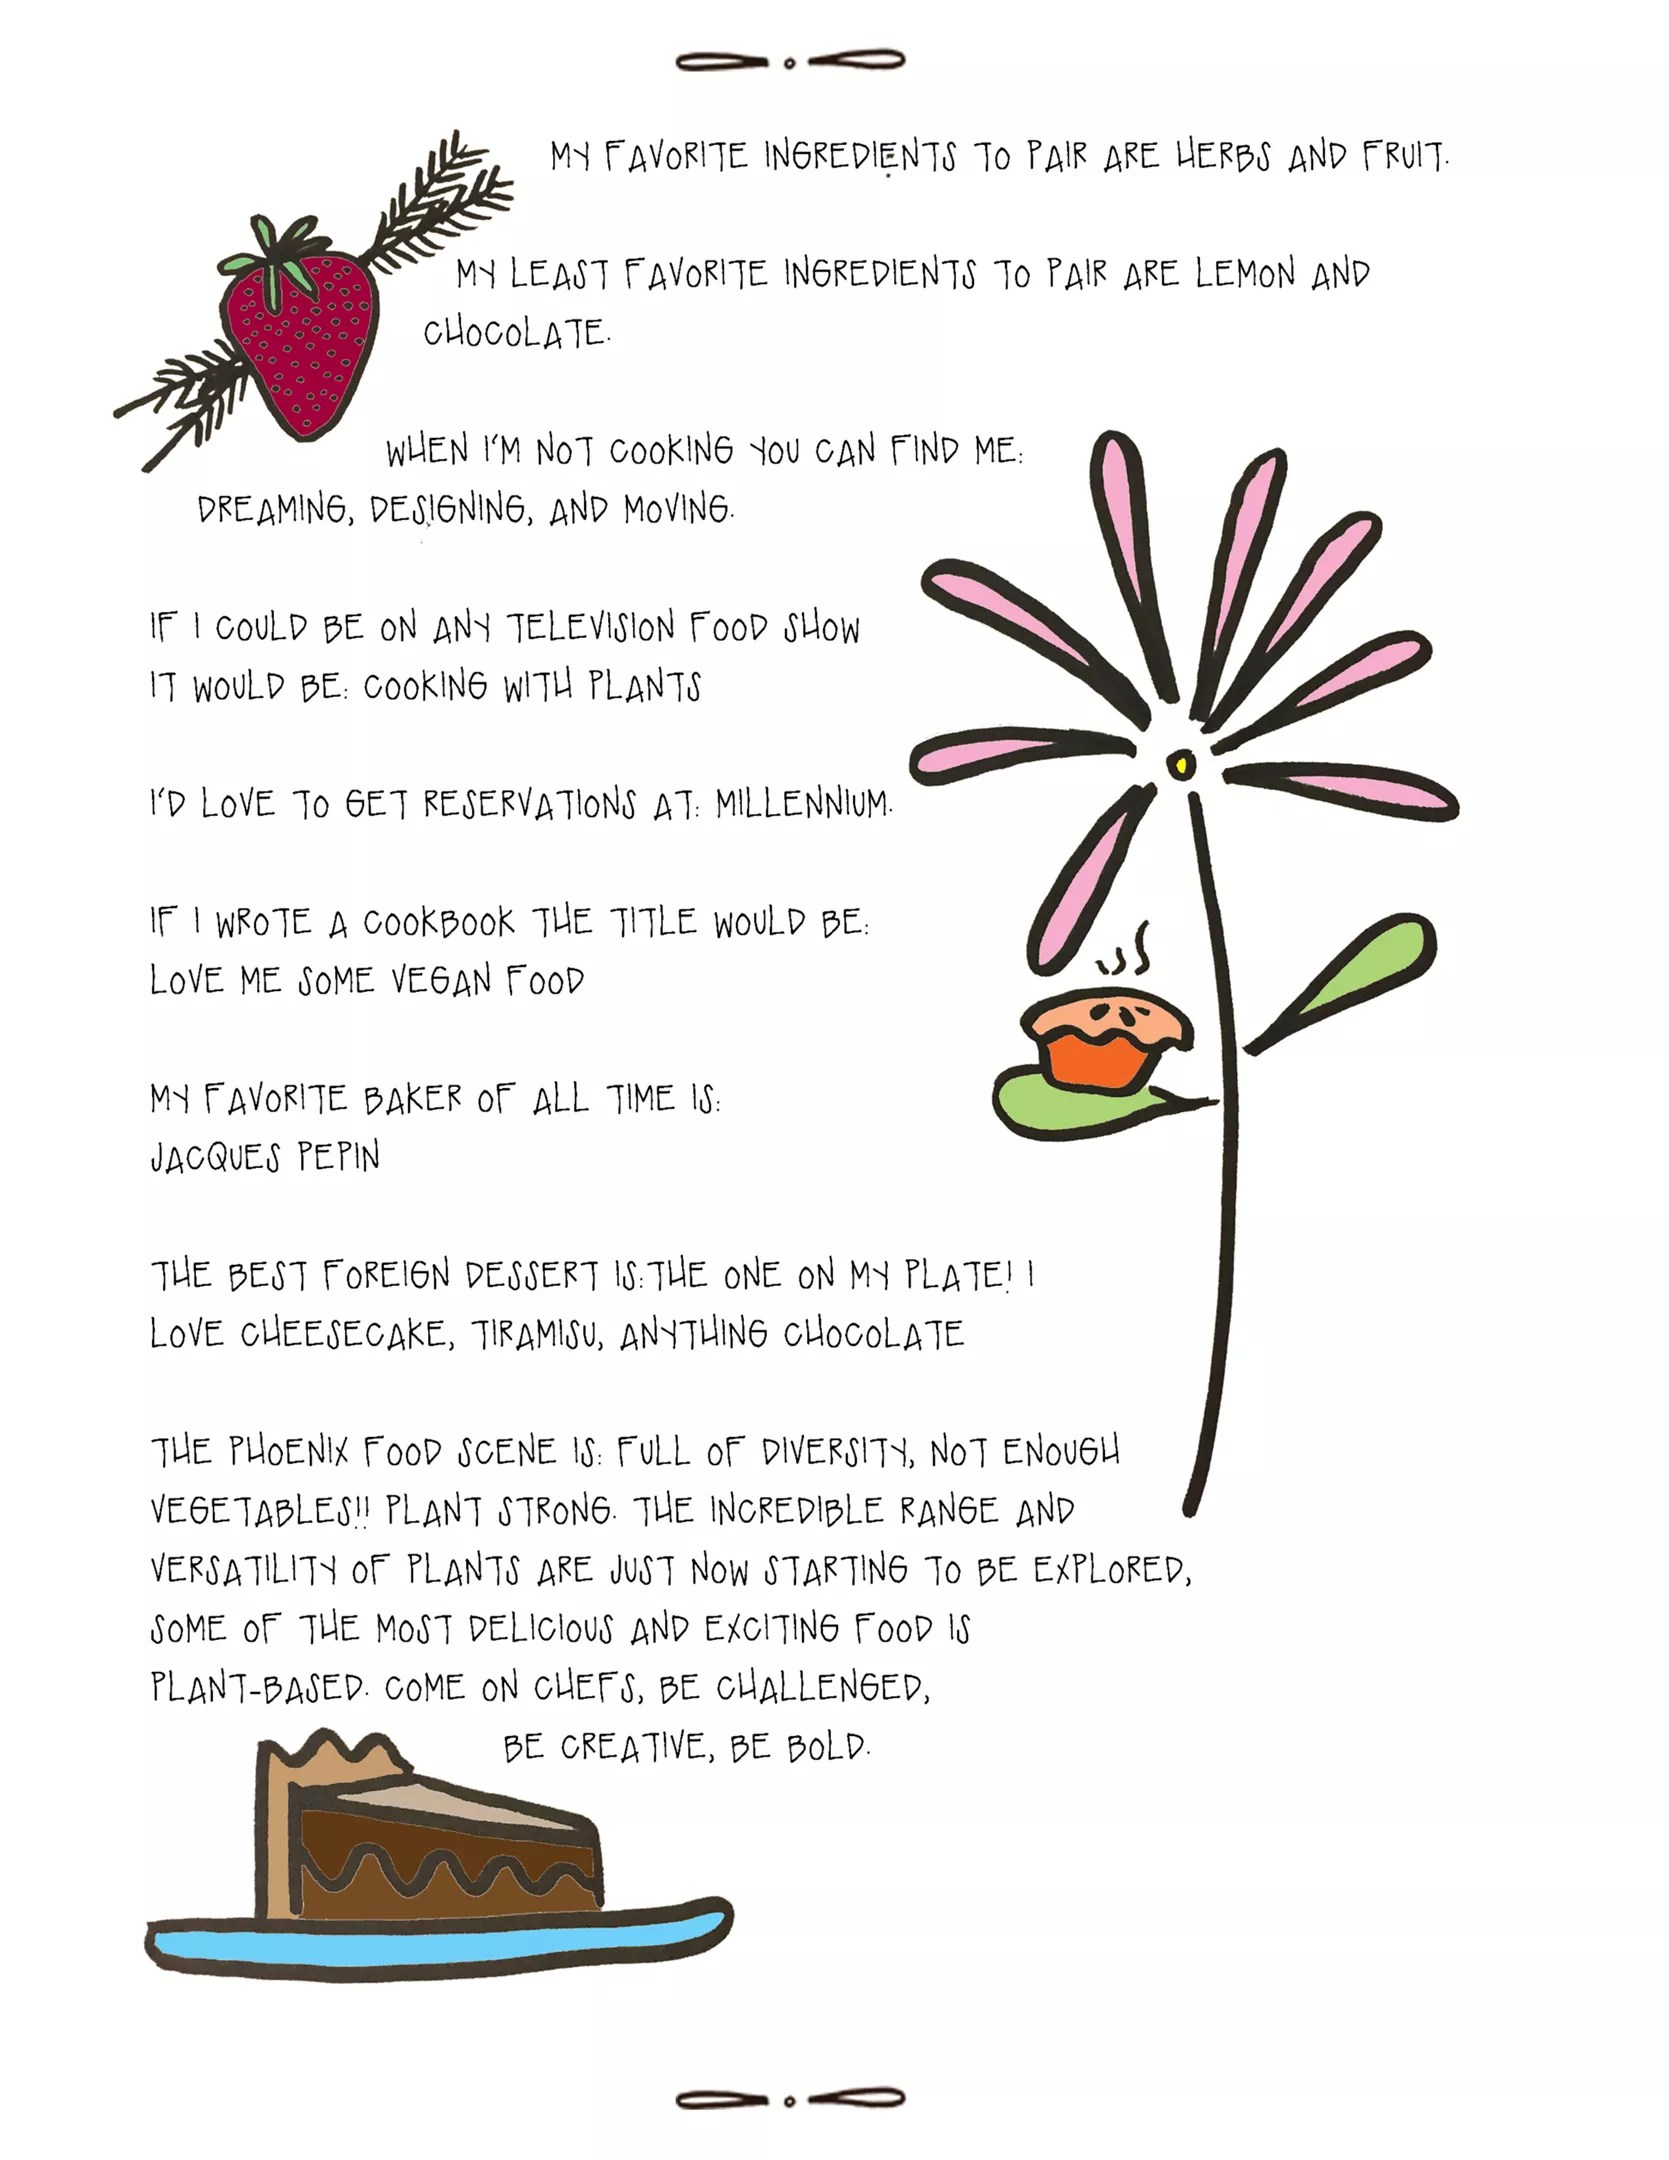 MY FAVORITE INGREDIENTS TO PAIR ARE HERBS AND FRUIT.
MY LEAST FAVORITE INGREDIENTS TO PAIR ARE LEMON AND
CHOCOLATE.
WHEN I'M NOT COOKING YOU CAN FIND ME:
DREAMING, DESIGNING, AND MOVING.
IF I COULD BE ON ANY TELEVISION FOOD SHOW
IT WOULD BE: COOKING WITH PLANTS
I'D LOVE TO GET RESERVATIONS AT: MILLENNIUM.
IF I WROTE A COOKBOOK THE TITLE WOULD BE:
LOVE ME SOME VEGAN FOOD
MY FAVORITE BAKER OF ALL TIME IS:
JACQUES PEPIN
THE BEST FOREIGN DESSERT IS:THE ONE ON MY PLATE! I
LOVE CHEESECAKE, TIRAMISU, ANYTHING CHOCOLATE
THE PHOENIX FOOD SCENE IS: FULL OF DIVERSITY, NOT ENOUGH
VEGETABLES!! PLANT STRONG. THE INCREDIBLE RANGE AND
VERSATILITY OF PLANTS ARE JUST NOW STARTING TO BE EXPLORED,
SOME OF THE MOST DELICIOUS AND EXCITING FOOD IS
PLANT-BASED. COME ON CHEFS, BE CHALLENGED,
BE CREATIVE, BE BOLD.